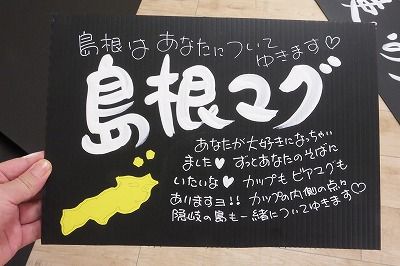 島根は あなたについて
ゆきます♡
島根マグ
あなたが大好きになっちゃい
ました♥ ずっとあなたのそばに
いたいな♥ カップも ビアマグも
ありますヨ!! カップの内側の点々
隠岐の島も一緒についてゆきます♡